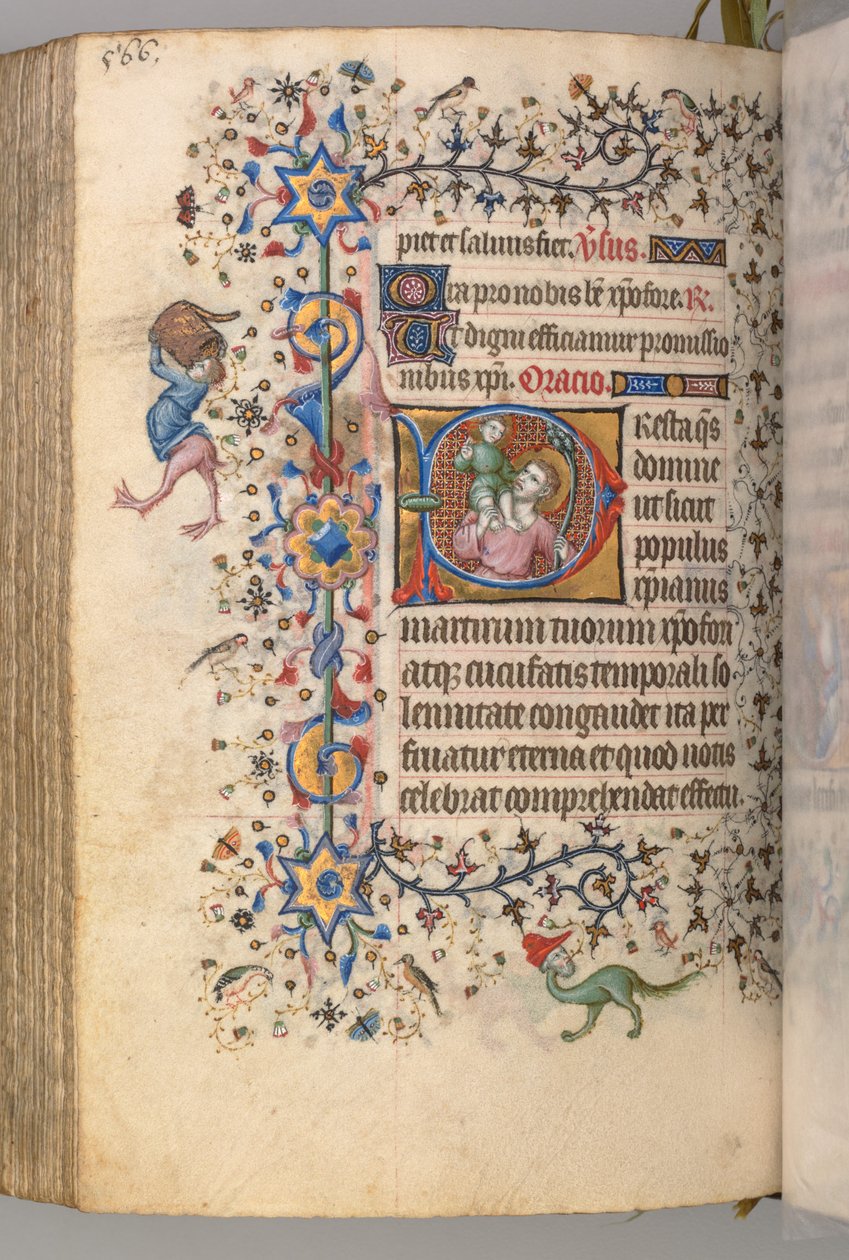 566.
piet et salvus fiet. V̄sus.
Ora pro nobis bē xp̄ofore. R.
Ut digni efficiamur promissio
nibus xp̄i. Oracio.
Presta q̄s
domine
ut sicut
populus
xp̄ianus
martirum tuorum xp̄ofori
atq̄ cucufatis temporali so
lennitate congaudet ita per
fruatur eterna et quod votis
celebrat comprehendat effectu.